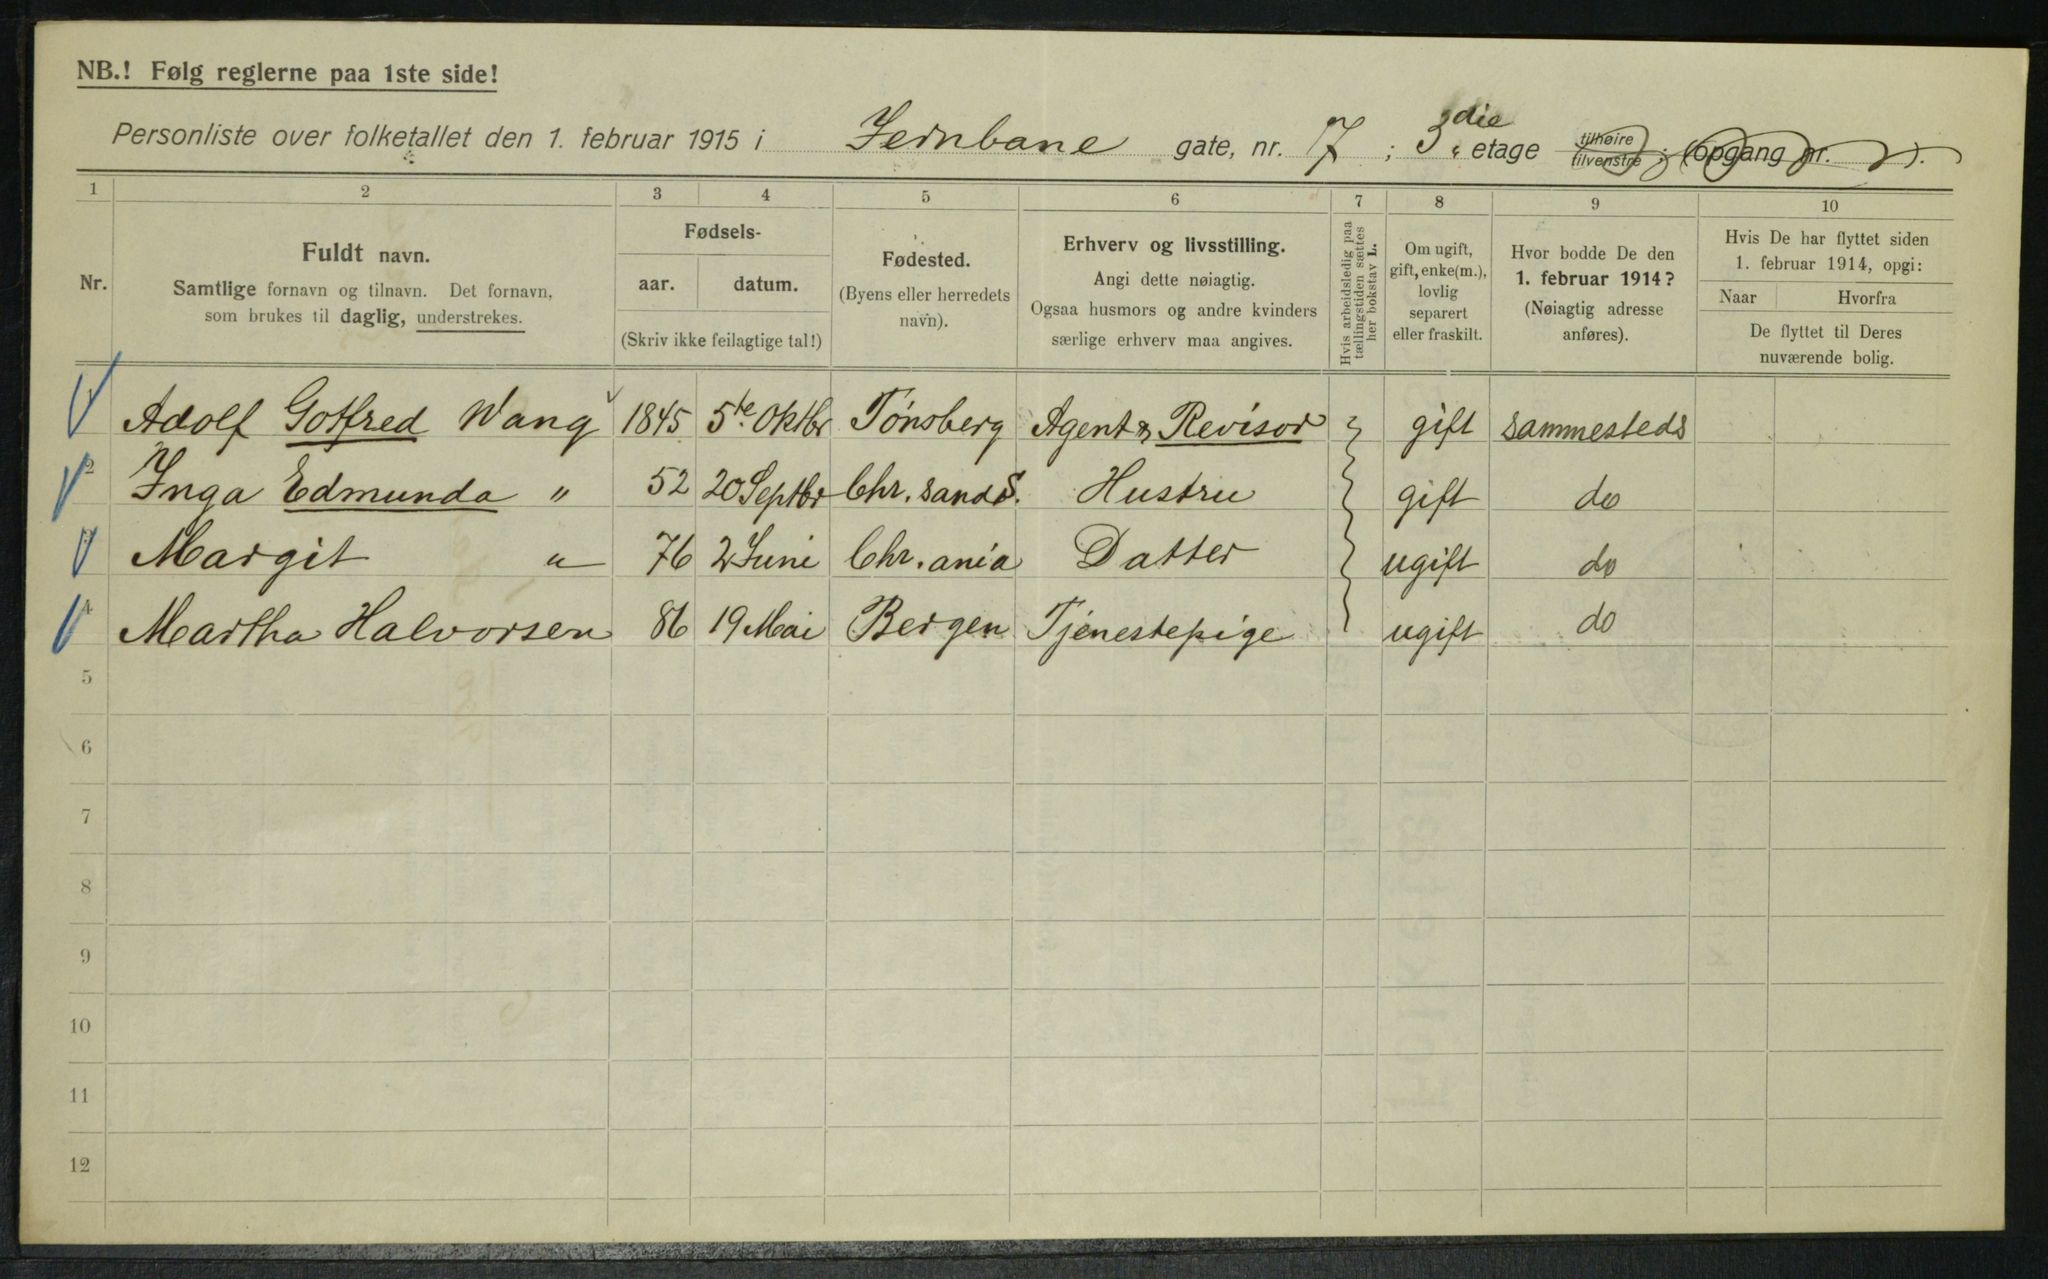 NB.! Følg reglerne paa 1ste side!
Personliste over folketallet den 1. februar 1915 i Jernbane gate, nr. 7 ; 3die etage tilhøire tilvenstre ; (opgang nr. ).
1 2 3 4 5 6 7 8 9 10
Nr.
Fuldt navn.
Samtlige fornavn og tilnavn. Det fornavn,
som brukes til daglig, understrekes.
Fødsels-
aar. datum.
(Skriv ikke feilagtige tal!)
Fødested.
(Byens eller herredets
navn).
Erhverv og livsstilling.
Angi dette nøiagtig.
Ogsaa husmors og andre kvinders
særlige erhverv maa angives.
Hvis arbeidsledig paa
tællingstiden sættes
her bokstav L.
Om ugift,
gift, enke(m.),
lovlig
separert
eller fraskilt.
Hvor bodde De den
1. februar 1914?
(Nøiagtig adresse
anføres).
Hvis De har flyttet siden
1. februar 1914, opgi:
Naar Hvorfra
De flyttet til Deres
nuværende bolig.
1 Adolf Gotfred Wang 1845 5te Oktbr Tønsberg Agent & Revisor gift sammesteds
2 Inga Edmunda " 52 20 Septbr Chr.sands. Hustru gift do
3 Margit " 76 2 Juni Chr.ania Datter ugift do
4 Martha Halvorsen 86 19 Mai Bergen Tjenestepige ugift do
5
6
7
8
9
10
11
12